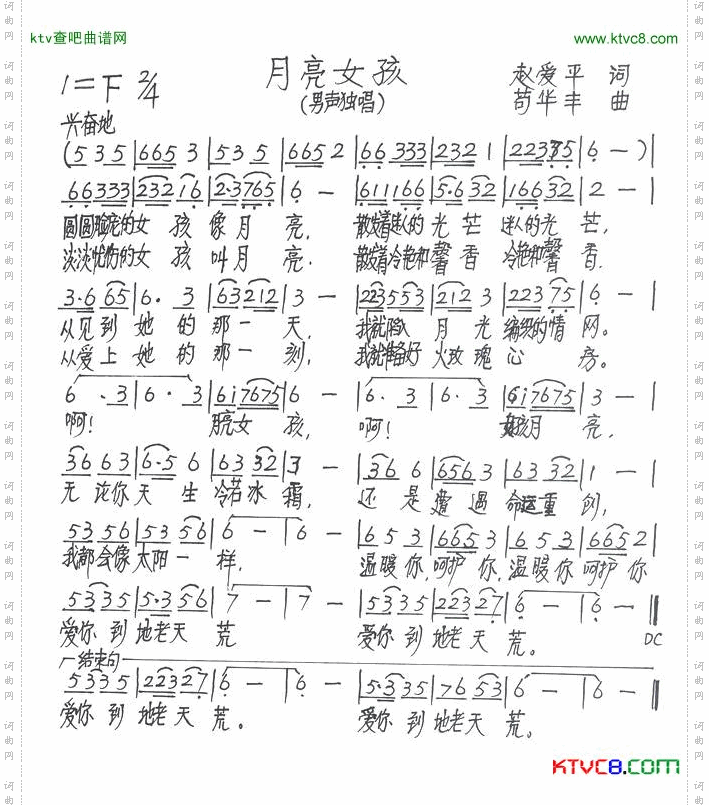 ktv查吧曲谱网 www.ktvc8.com
月亮女孩
(男声独唱)
1=下 2/4
赵爱平 词
苟华丰 曲
兴奋地
(5 3 5 | 665 3 | 5 3 5 | 665 2 | 66 333 | 232 1 | 6 - ) |
66333 | 232 16 | 2·3765 | 6 - | 611166 | 5·6 32 | 166 32 | 2 - |
圆圆脸庞的女孩像月亮, 散发着迷人的光芒 迷人的光芒,
淡淡忧伤的女孩叫月亮. 散发着冷艳和馨香 冷艳和馨香.
3·6 65 | 6· 3 | 63 212 | 3 - | 223553 | 212 3 | 223 75 | 6 - |
从见到她的那一天, 我就陷入月光编织的情网。
从爱上她的那一刻, 我就准备好火玫瑰心房。
6 · 3 | 6 · 3 | 6i7675 | 6 - | 6 · 3 | 6 · 3 | 6i7675 | 3 - |
啊! 月亮女孩, 啊! 女孩月亮,
36 63 | 6·5 6 | 63 32 | 3 - | 36 6 | 656 3 | 63 32 | 1 - |
无论你天生冷若冰霜, 还是遭遇命运重创,
53 56 | 53 56 | 6 - | 6 - | 6 5 3 | 665 3 | 6 5 3 | 665 2 |
我都会像太阳一样, 温暖你,呵护你,温暖你呵护你
5335 | 5·3 56 | 7 - | 7 - | 5335 | 22327 | 6 - | 6 - ‖
爱你到地老天荒 爱你到地老天荒。 DC
结束句
5335 | 22327 | 6 - | 6 - | 5·335 | 76 53 | 6 - | 6 - ‖
爱你到地老天荒。 爱你到地老天荒。
KTVC8.COM